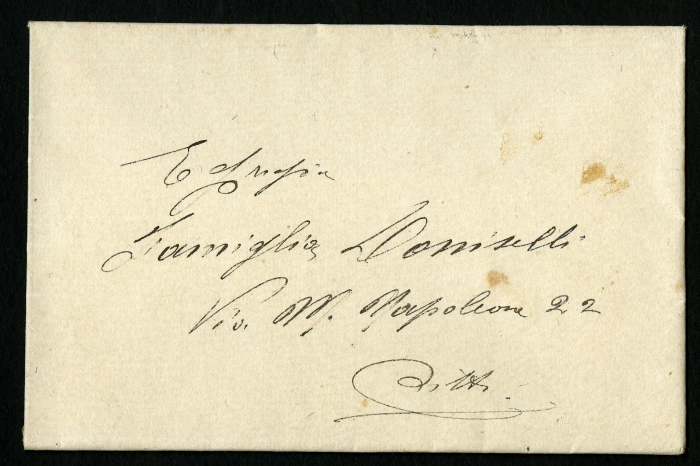 Egregia
Famiglia Doniselli
Via M. Napoleone 22
Città